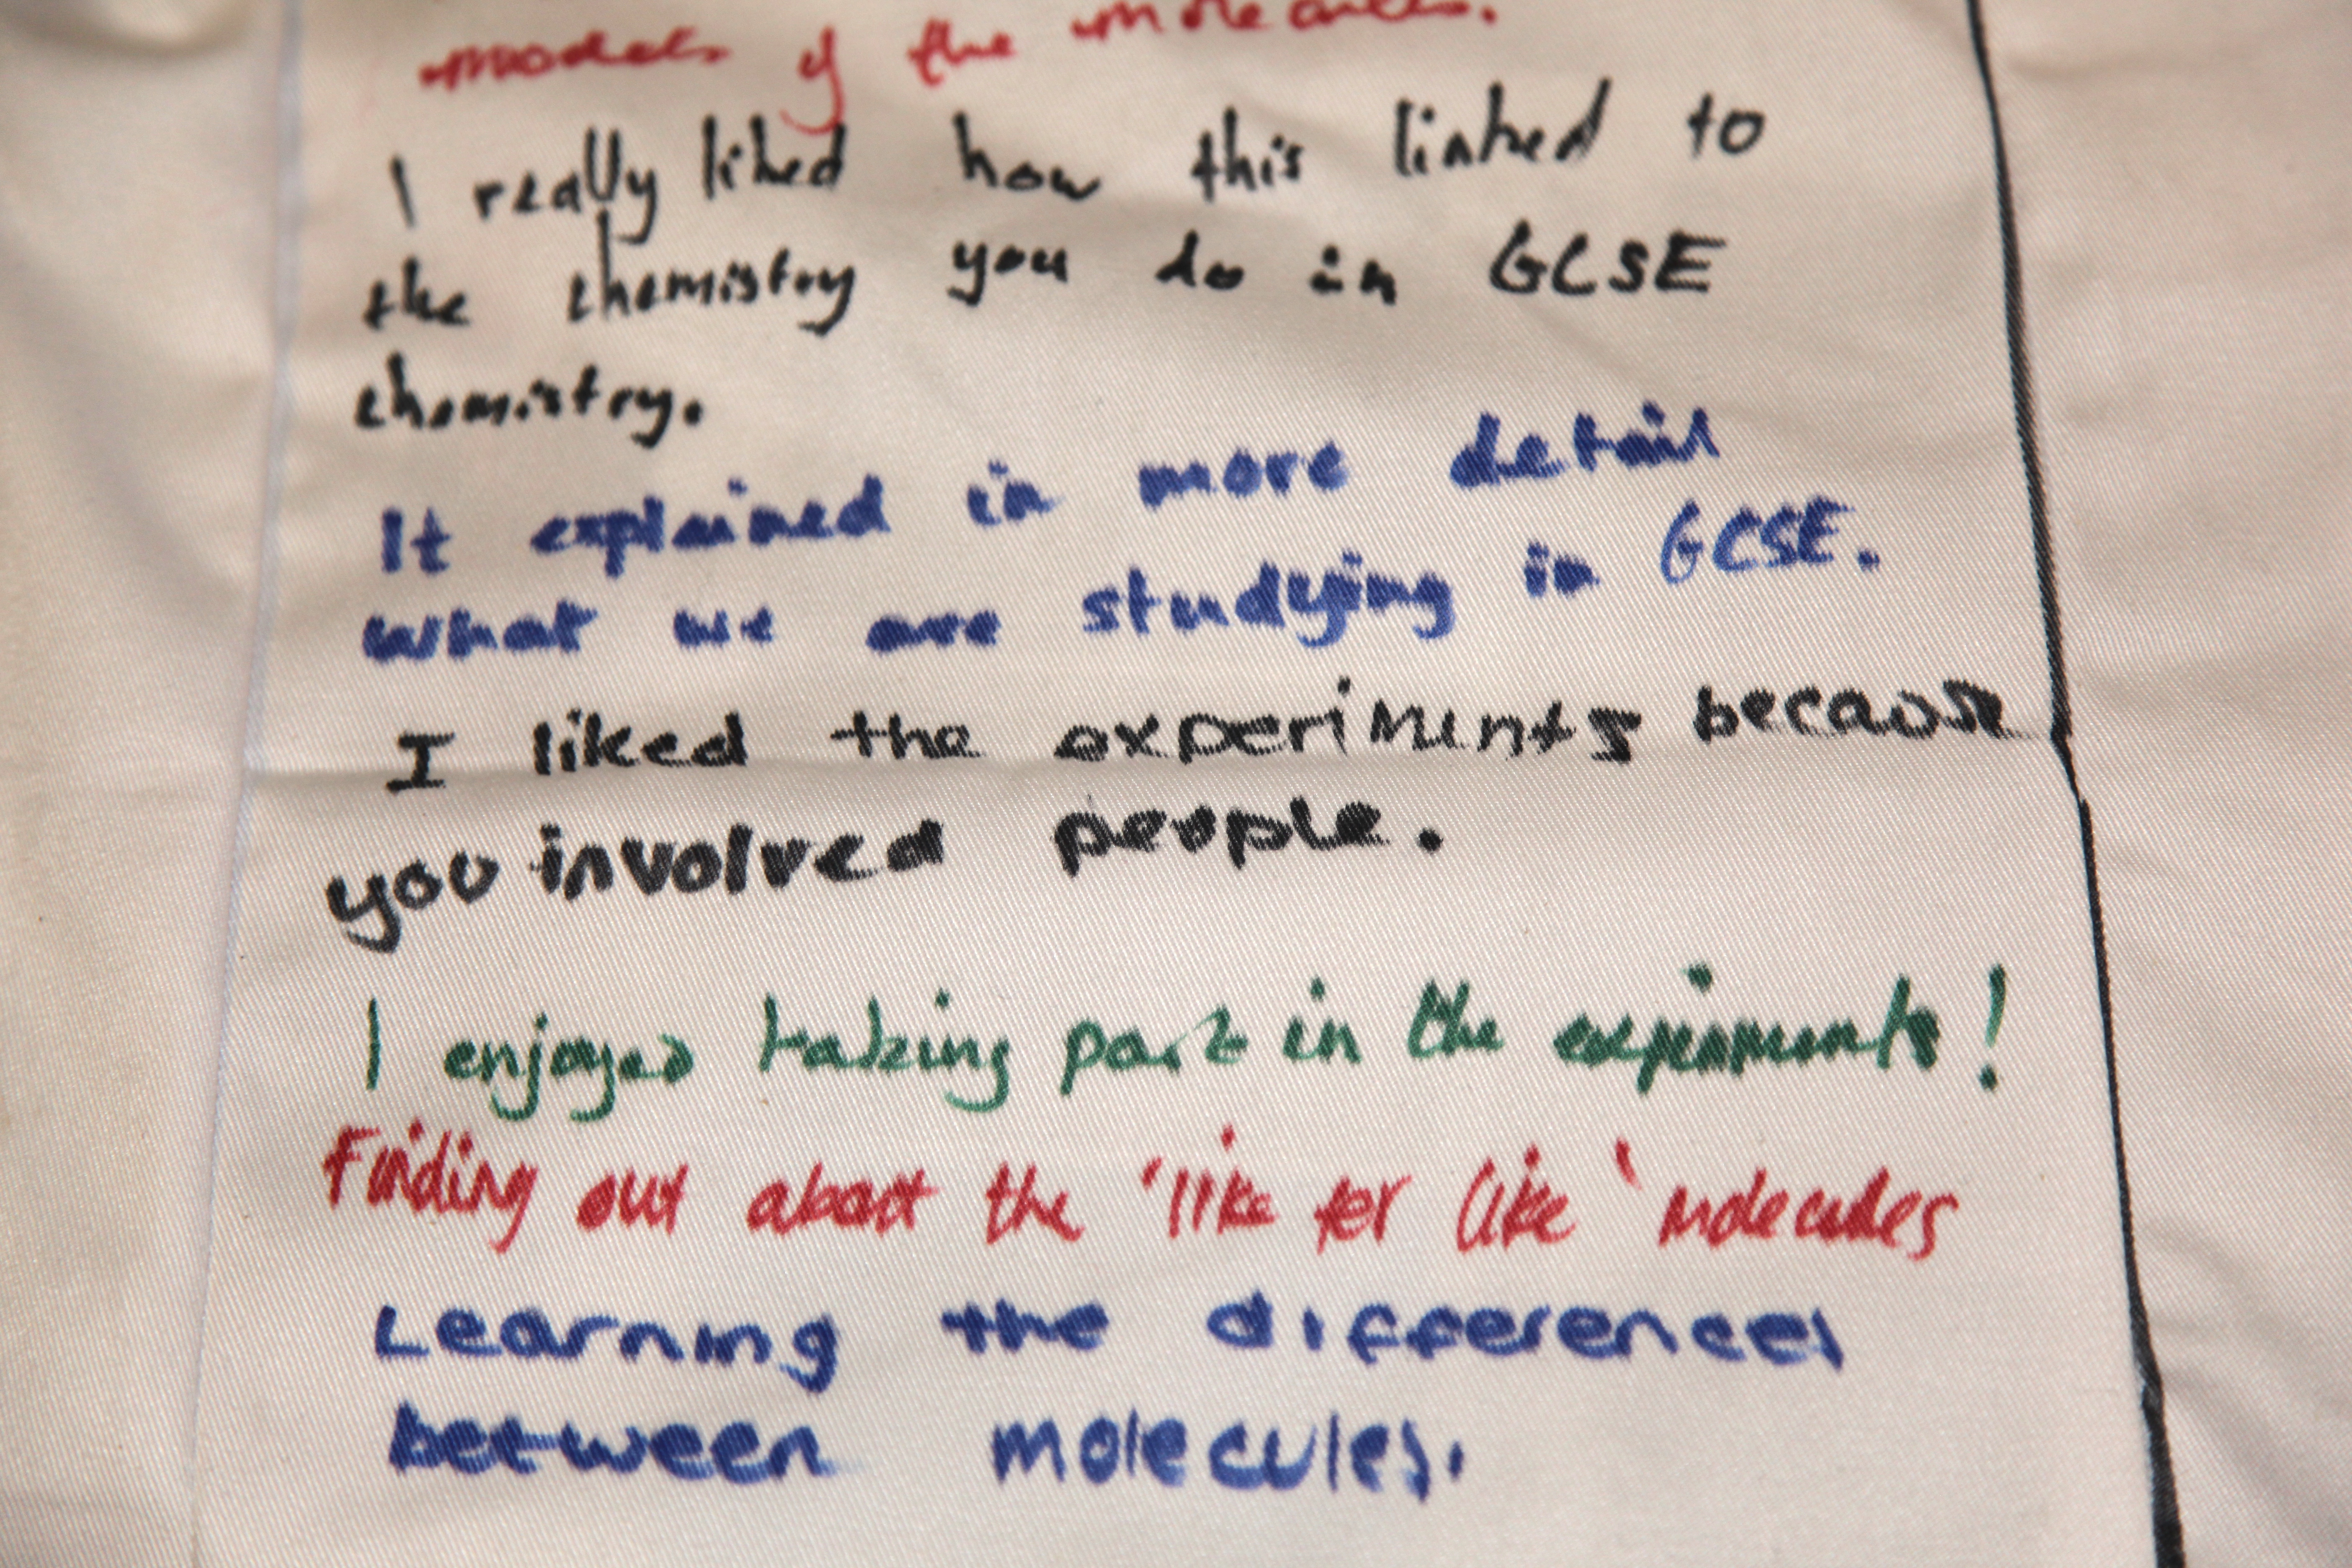 models of the molecules.
I really liked how this linked to
the chemistry you do in GCSE
chemistry.
It explained in more detail
what we are studying in GCSE.
I liked the experiments because
you involved people.
I enjoyed taking part in the experiments!
Finding out about the 'like for like' molecules
Learning the differences
between molecules.